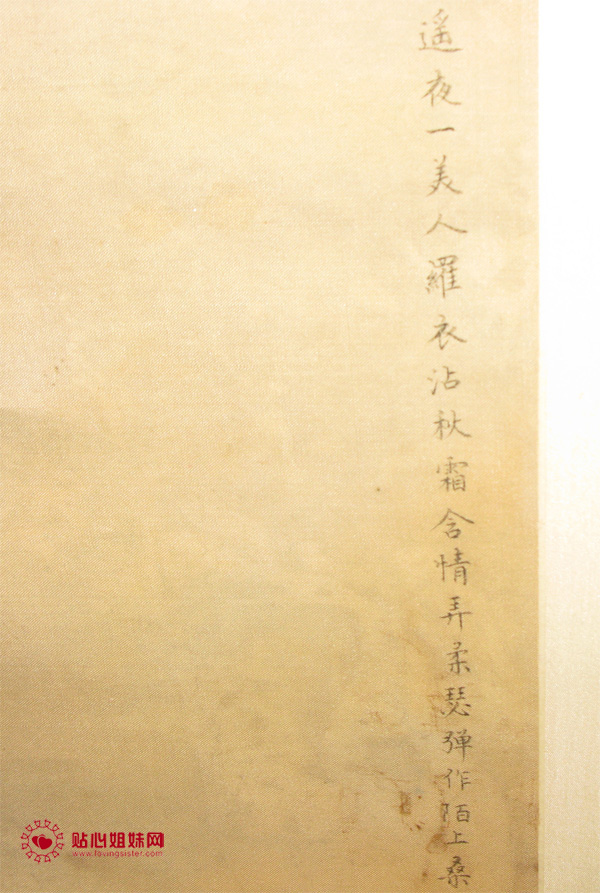 遥夜一美人羅衣沾秋霜含情弄柔瑟弾作陌上桑
贴心姐妹网
www.lovingsister.com